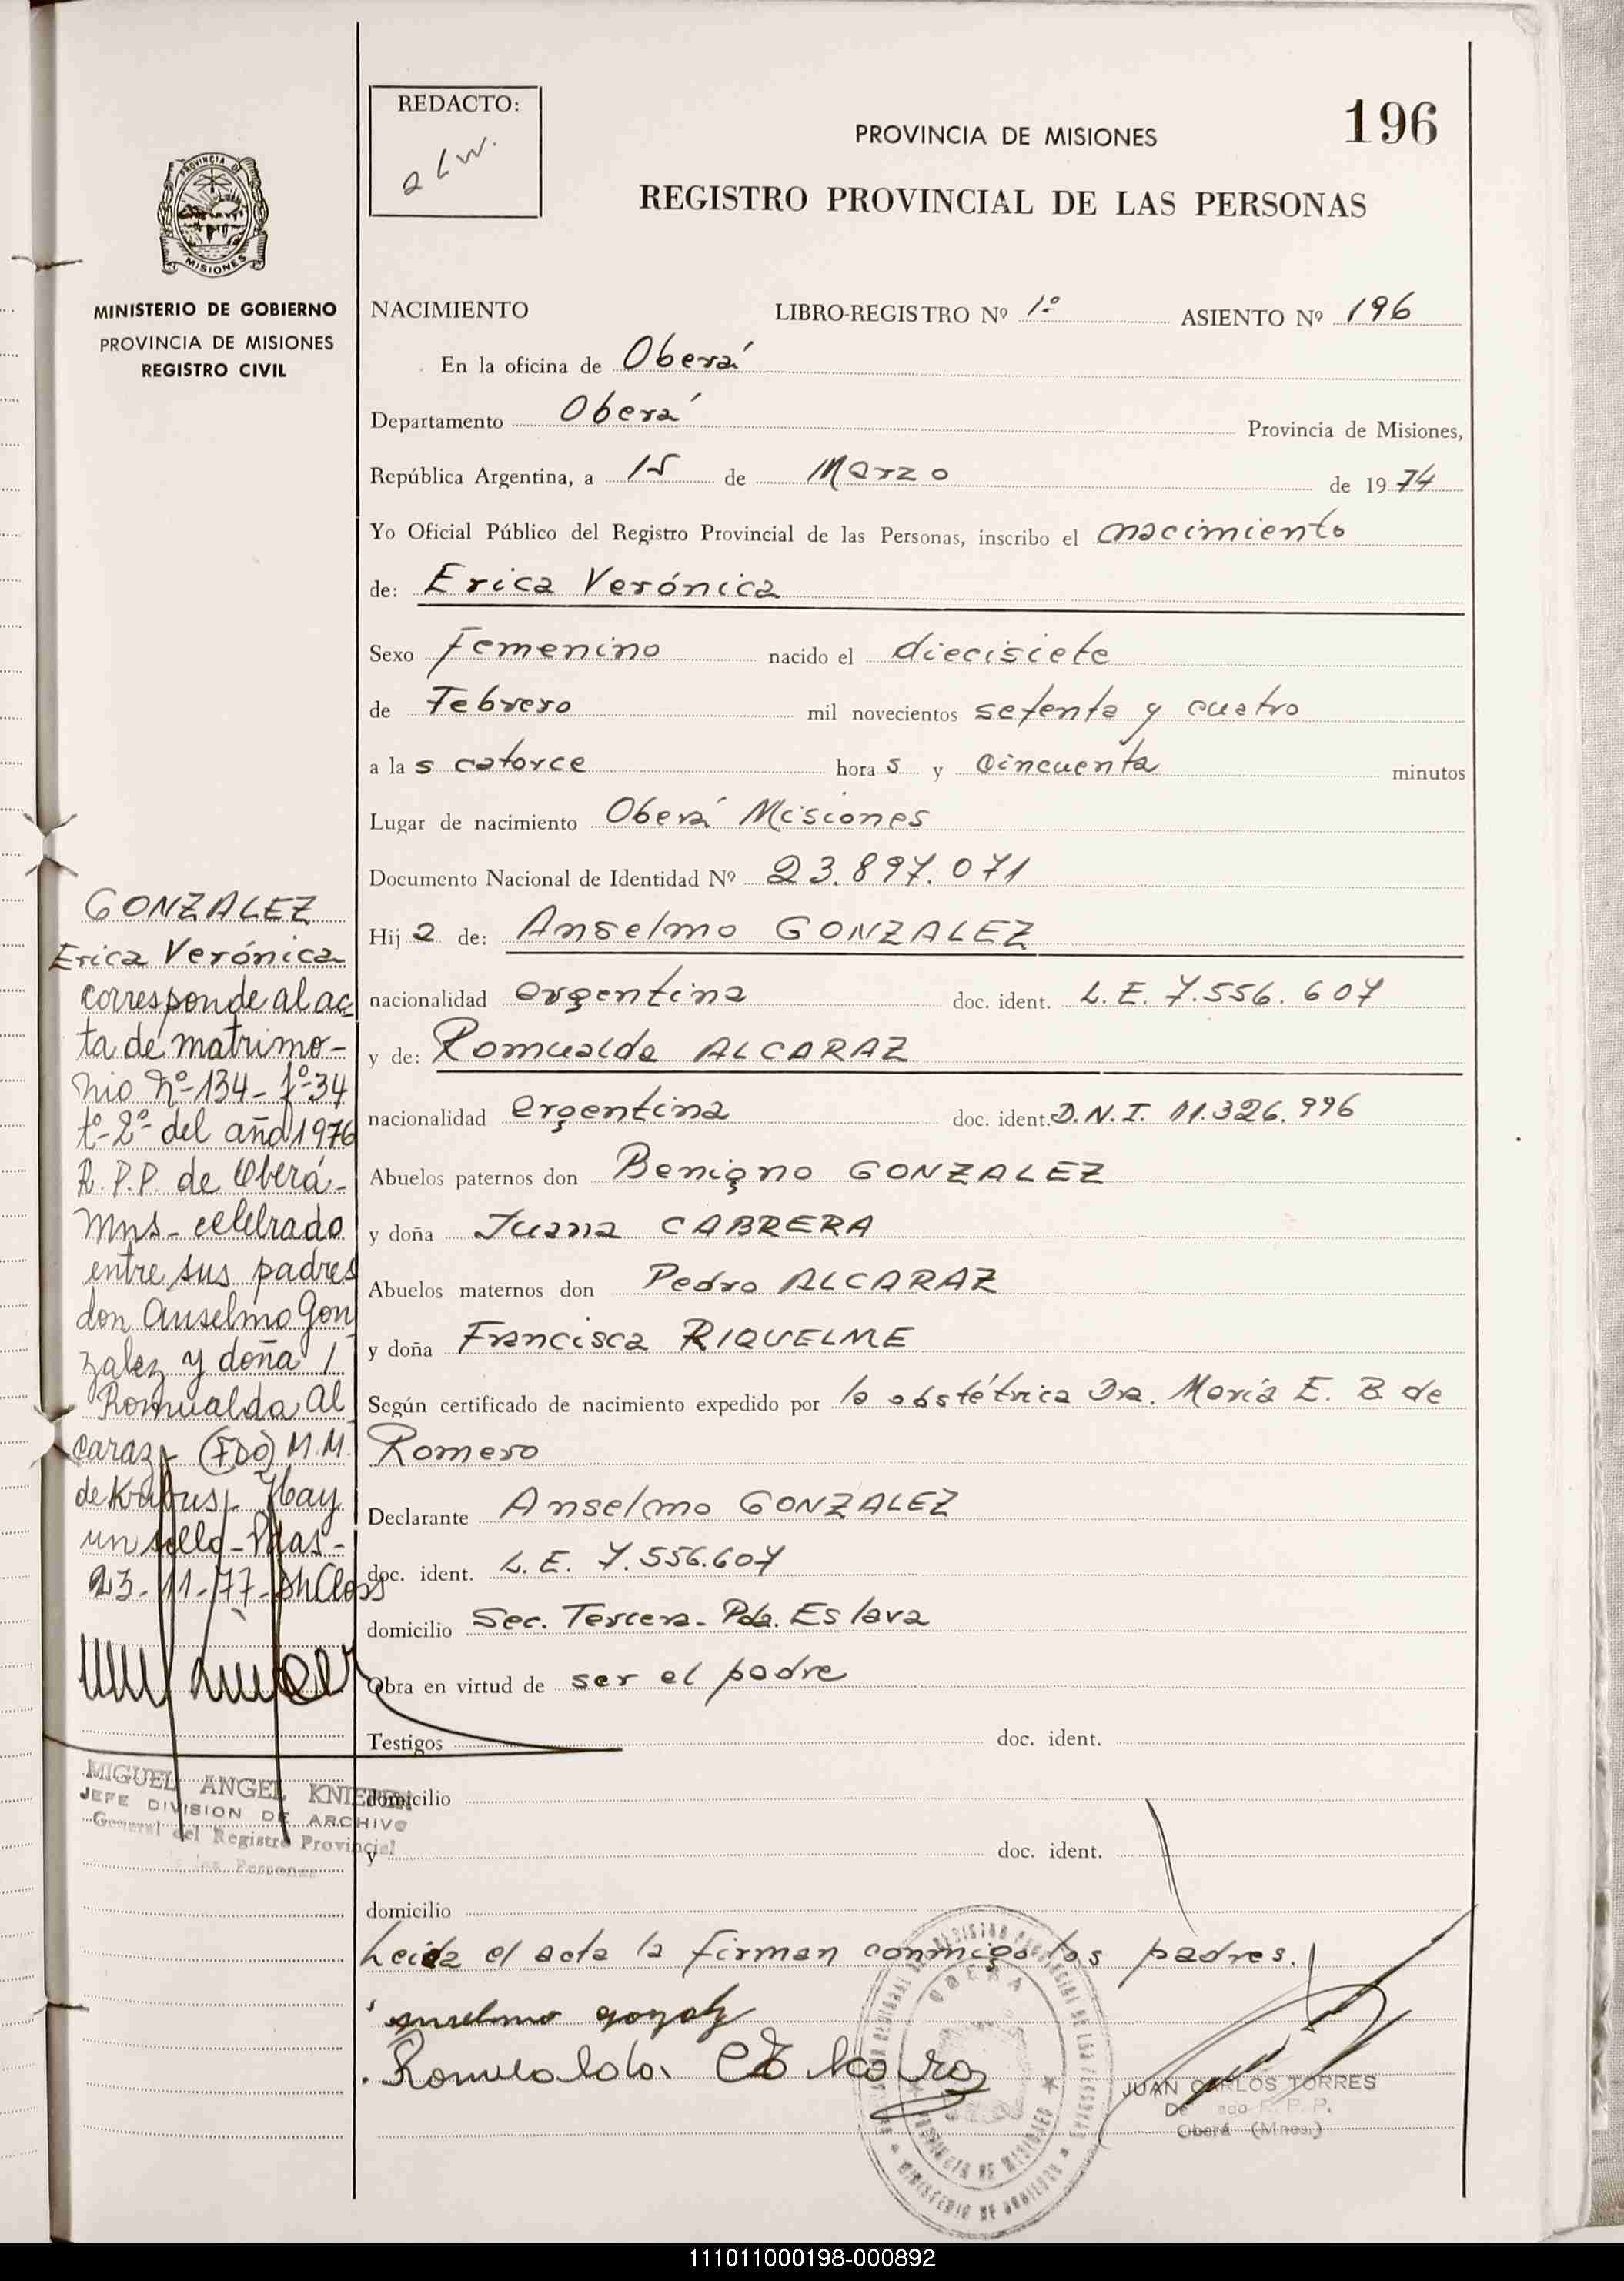 REDACTO:
a L W.
PROVINCIA DE MISIONES
196
REGISTRO PROVINCIAL DE LAS PERSONAS
PROVINCIA DE
MISIONES
MINISTERIO DE GOBIERNO
PROVINCIA DE MISIONES
REGISTRO CIVIL
NACIMIENTO LIBRO-REGISTRO Nº 1º ASIENTO Nº 196
En la oficina de Oberá
Departamento Oberá Provincia de Misiones,
República Argentina, a 15 de Marzo de 1974
Yo Oficial Público del Registro Provincial de las Personas, inscribo el nacimiento
de: Erica Verónica
Sexo Femenino nacido el diecisiete
de Febrero mil novecientos setenta y cuatro
a las catorce horas y cincuenta minutos
Lugar de nacimiento Oberá Misiones
Documento Nacional de Identidad Nº 23.897.071
Hija de: Anselmo GONZALEZ
nacionalidad argentina doc. ident. L.E. 7.556.607
y de: Romualda ALCARAZ
nacionalidad argentina doc. ident. D.N.I. 11.326.996
Abuelos paternos don Benigno GONZALEZ
y doña Juana CABRERA
Abuelos maternos don Pedro ALCARAZ
y doña Francisca RIQUELME
Según certificado de nacimiento expedido por la obstétrica Dra. María E. B. de
Romero
Declarante Anselmo GONZALEZ
doc. ident. L.E. 7.556.607
domicilio Sec. Tercera - Pda. Eslava
Obra en virtud de ser el padre
Testigos doc. ident.
domicilio
y doc. ident.
domicilio
Leida el acta la firman conmigo los padres.
anselmo gonzalez
Romualda
JUAN CARLOS TORRES
R. P. P.
Oberá (Mnes.)
OBERA
PROVINCIA DE MISIONES
MINISTERIO DE GOBIERNO
GONZALEZ
Erica Verónica
corresponde al ac
ta de matrimo-
nio Nº-134- fº-34
tº-2º del año 1976
R.P.P. de Oberá-
Mns- celebrado
entre sus padres
don Anselmo Gon
zalez y doña /
Romualda Al
caraz- (FDO) M.M.
de Hay
un sello - Pdas-
23-11-77-
MIGUEL ANGEL
JEFE DIVISION DE ARCHIVO
General del Registro Provincial
de las Personas
111011000198-000892